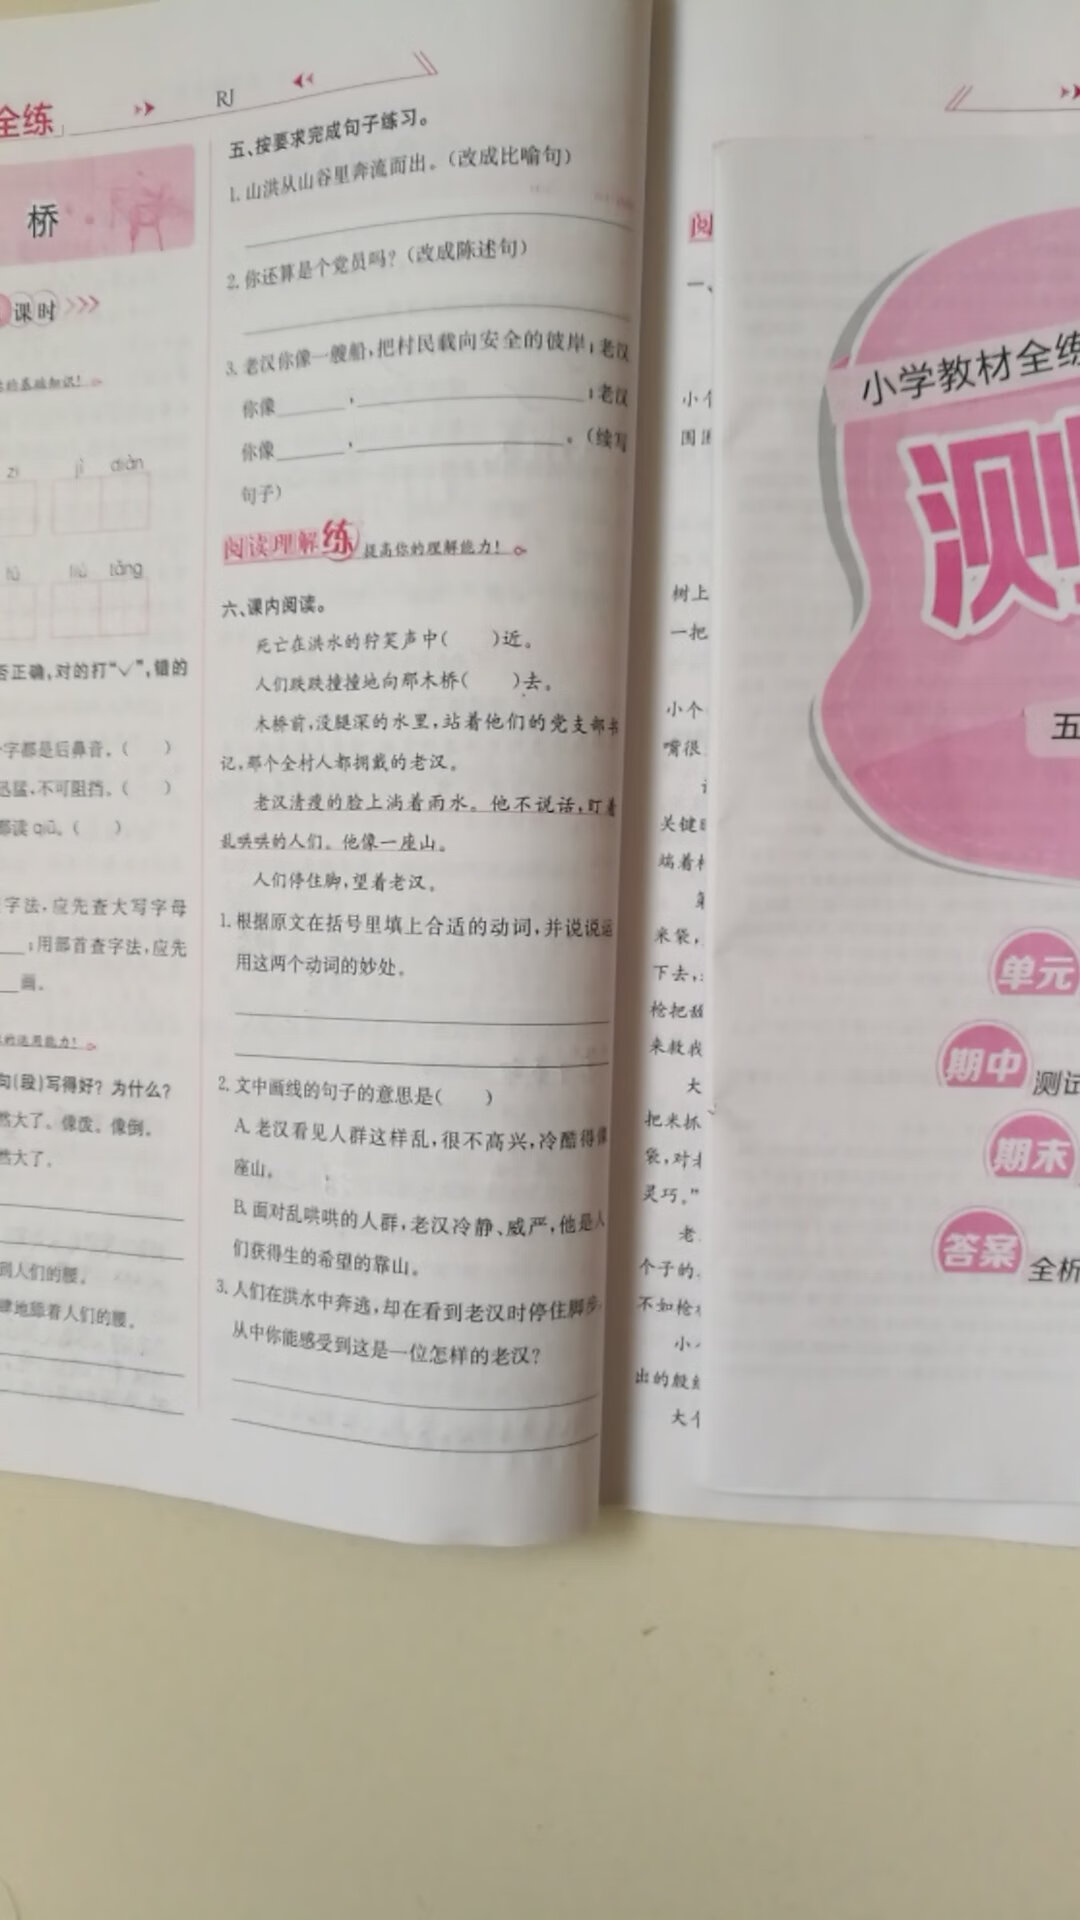 全练
RJ
桥
课时
的基础知识!
zǐ jì diàn
liú tǎng
否正确,对的打“√”,错的
字都是后鼻音。( )
迅猛,不可阻挡。( )
都读qiū。( )
字法,应先查大写字母
;用部首查字法,应先
画。
的运用能力!
句(段)写得好?为什么?
然大了。像泼。像倒。
然大了。
到人们的腰。
肆地舔着人们的腰。
五、按要求完成句子练习。
1.山洪从山谷里奔流而出。(改成比喻句)
2.你还算是个党员吗?(改成陈述句)
3.老汉你像一艘船,把村民载向安全的彼岸;老汉
你像______,______;老汉
你像______,______。(续写
句子)
阅读理解练 提高你的理解能力!
六、课内阅读。
死亡在洪水的狞笑声中( )近。
人们跌跌撞撞地向那木桥( )去。
木桥前,没腿深的水里,站着他们的党支部书
记,那个全村人都拥戴的老汉。
老汉清瘦的脸上淌着雨水。他不说话,盯着
乱哄哄的人们。他像一座山。
人们停住脚,望着老汉。
1.根据原文在括号里填上合适的动词,并说说运
用这两个动词的妙处。
2.文中画线的句子的意思是( )
A.老汉看见人群这样乱,很不高兴,冷酷得像
座山。
B.面对乱哄哄的人群,老汉冷静、威严,他是人
们获得生的希望的靠山。
3.人们在洪水中奔逃,却在看到老汉时停住脚步,
从中你能感受到这是一位怎样的老汉?
阅
一、
小个
围困
树上
一把
小个
嘴很
关键时
端着
米袋,
下去,
枪把
来救我
大
把米抓
袋,对
灵巧。”
老
个子的
不如枪
小
出的般
大个
小学教材全练
测
五
单元
期中 测试
期末
答案 全析